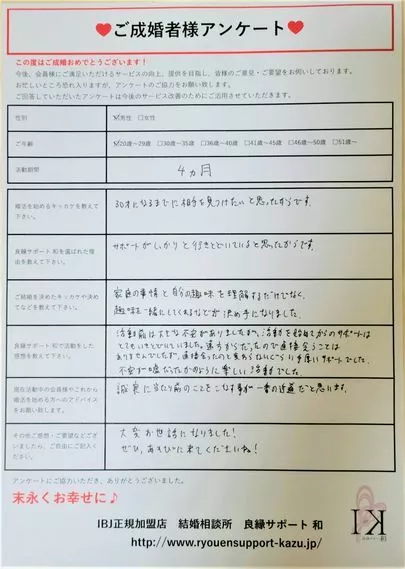 ♥ご成婚者様アンケート♥
この度はご成婚おめでとうございます！
今後、会員様にご満足いただけるサービスの向上、提供を目指し、皆様のご意見・ご要望をお伺いしております。
お忙しいところ恐れ入りますが、アンケートのご協力をお願い致します。
ご回答していただいたアンケートは今後のサービス改善のためにご活用させていただきます。
性別 ☑男性 □女性
ご年齢 ☑20歳～29歳 □30歳～35歳 □36歳～40歳 □41歳～45歳 □46歳～50歳 □51歳～
活動期間 4ヵ月
婚活を始めるキッカケを教えて
下さい。
30才になるまでに相手を見つけたいと思ったからです。
良縁サポート 和を選ばれた理
由を教えて下さい。
サポートがしっかりと行きとどいていると思ったからです。
ご結婚を決めたキッカケや決め
てなどを教えて下さい。
家庭の事情と自分の趣味を理解するだけでなく、
趣味を一緒にしてくれるなどが決め手になりました。
良縁サポート 和で活動をした
感想を教えて下さい。
活動前は大きな不安がありましたが、活動を始めてからのサポートは
とてもいきとどいていました。遠方からだったので直接会うことは
ありませんでしたが、直接会ったのと変わらないぐらい手厚いサポートでした。
不安が嘘だったかのように楽しい活動でした。
現在活動中の会員様やこれから
婚活を始める方へのアドバイス
をお願い致します。
誠実に当たり前のことをこなす事が一番の近道だと思います。
その他ご感想・ご要望などござ
いましたら、ご自由にご記入く
ださい。
大変お世話になりました！
ぜひ、あそびに来てくださいね！
アンケートにご協力いただき、ありがとうございました。
末永くお幸せに♪
IK
和
IBJ正規加盟店 結婚相談所 良縁サポート 和
http://www.ryouensupport-kazu.jp/